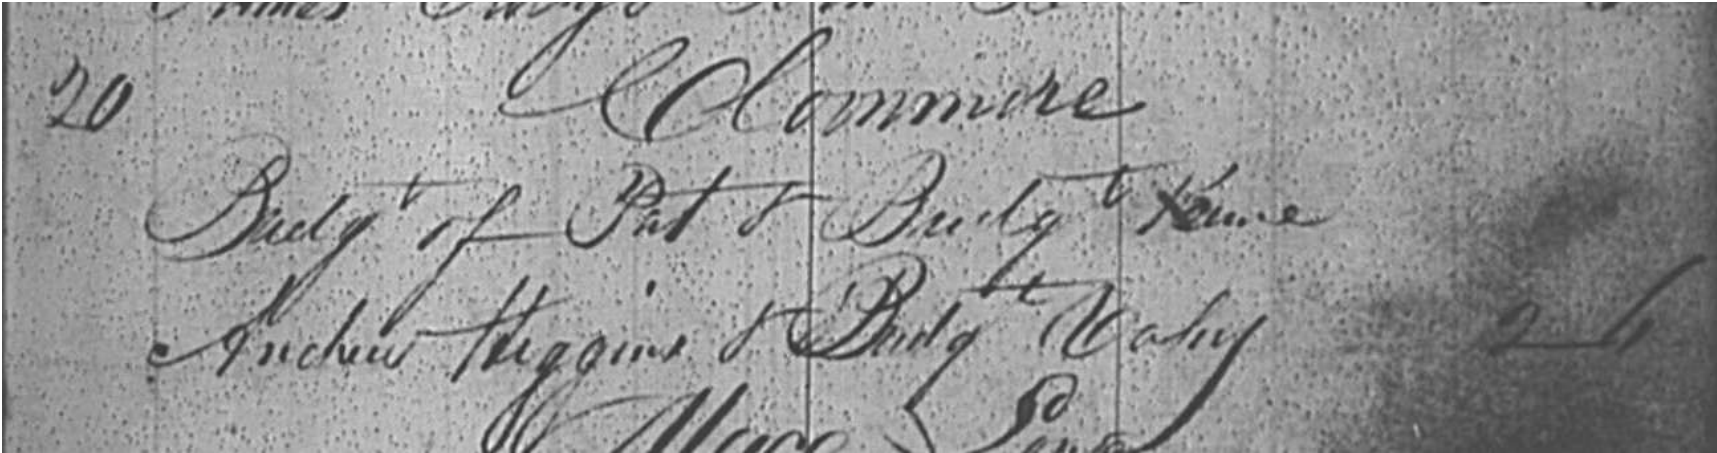 20 Clonmore
Bridgt of Pat & Bridgt Keane
Andrew Higgins & Bridgt Vahy 2/6